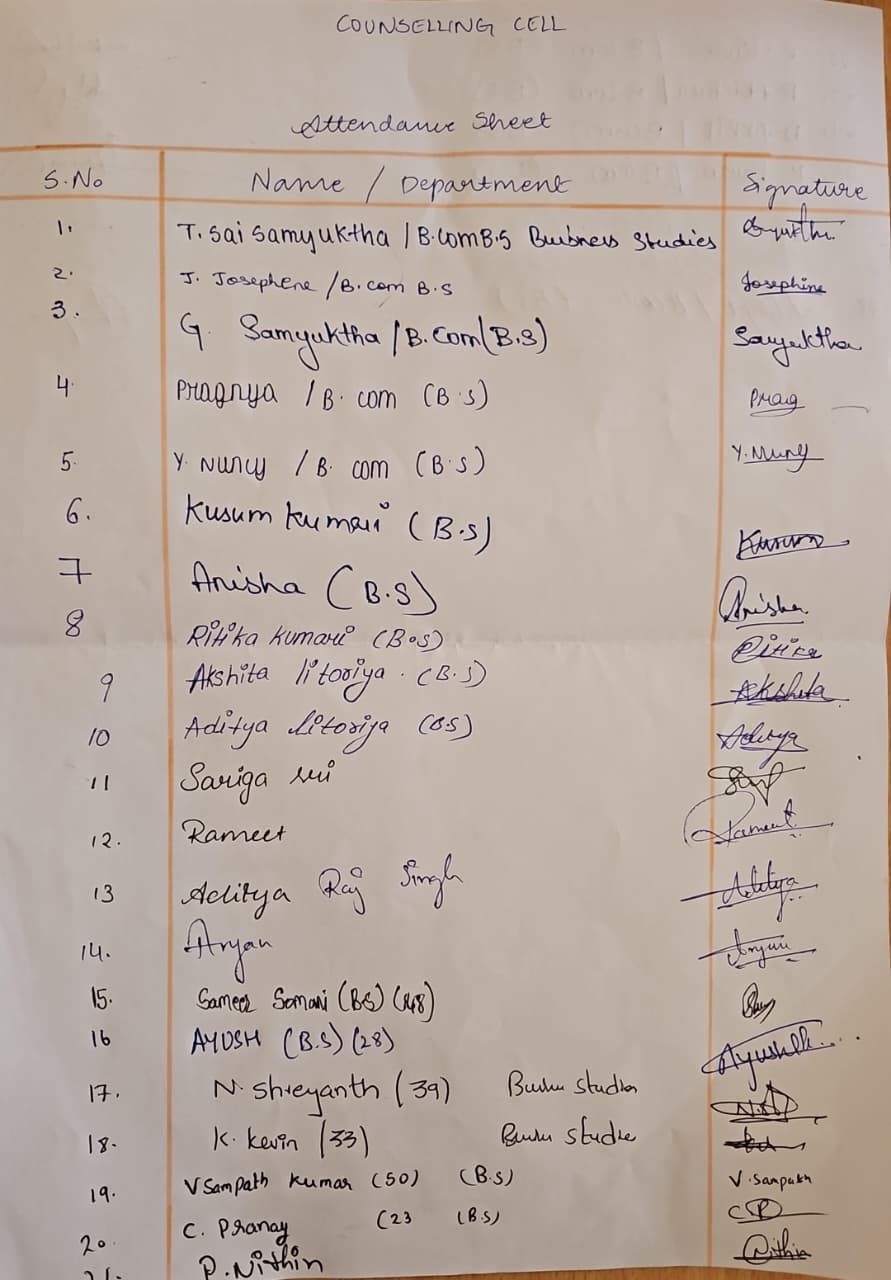 COUNSELLING CELL
Attendance Sheet
S.No Name / Department Signature
1. T. Sai Samyuktha / B.com B.S Business Studies
2. J. Josephene / B.com B.S Josephine
3. G. Samyuktha / B.Com (B.S) Samyuktha
4. Pragnya / B. com (B.S) Prag
5. Y. Nuncy / B. com (B.S) Y. Nuncy
6. Kusum Kumari (B.S) Kusum
7 Anisha (B.S) Anisha
8 Ritika Kumari (B.S) Ritika
9 Akshita litoriya. (B.S) Akshita
10 Aditya litoriya (BS) Aditya
11 Sariga
12. Rameet Rameet
13 Aditya Raj Singh Aditya
14. Aryan Aryan
15. Sameer Somani (BS) (48)
16 AYUSH (B.S) (28) Ayush
17. N. Shreyanth (39)
18. K. Kevin (33)
19. V Sampath Kumar (50) (B.S) V. Sampath
20. C. Pranay (23 (B.S) CP
21. P. Nithin Nithin